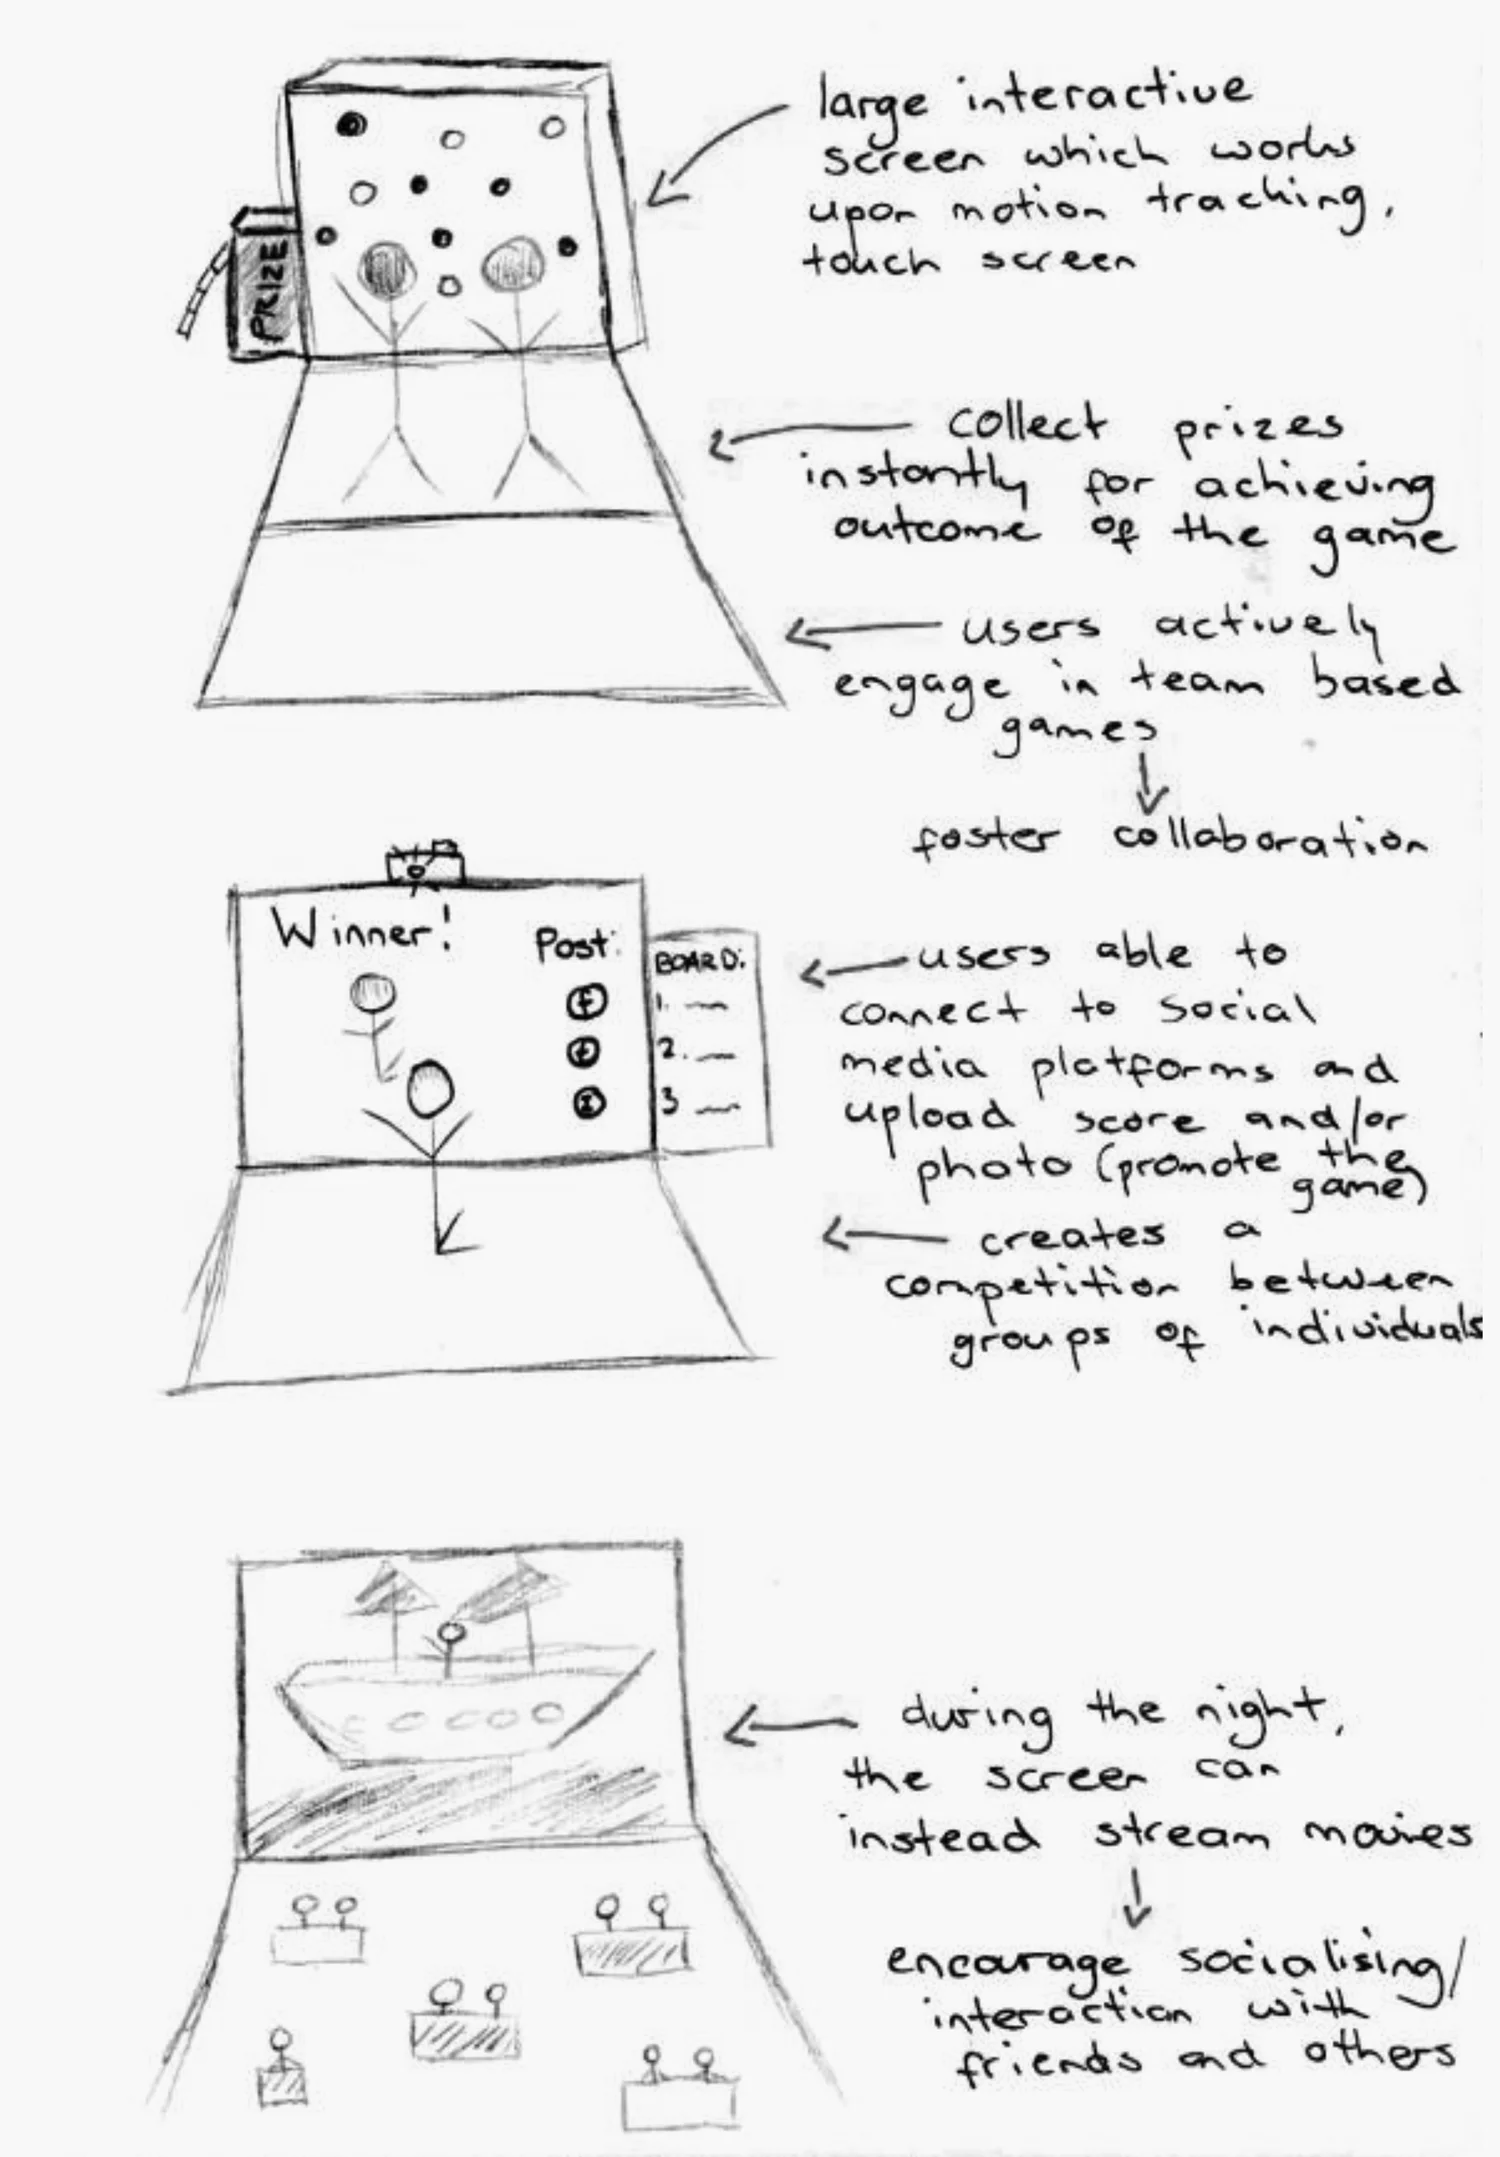 large interactive
screen which works
upon motion tracking,
touch screen
PRIZE
collect prizes
instantly for achieving
outcome of the game
users actively
engage in team based
games
foster collaboration
Winner!
Post:
f
t
I
BOARD:
1.
2.
3
users able to
connect to social
media platforms and
upload score and/or
photo (promote the
game)
creates a
competition between
groups of individuals
during the night,
the screen can
instead stream movies
encourage socialising/
interaction with
friends and others